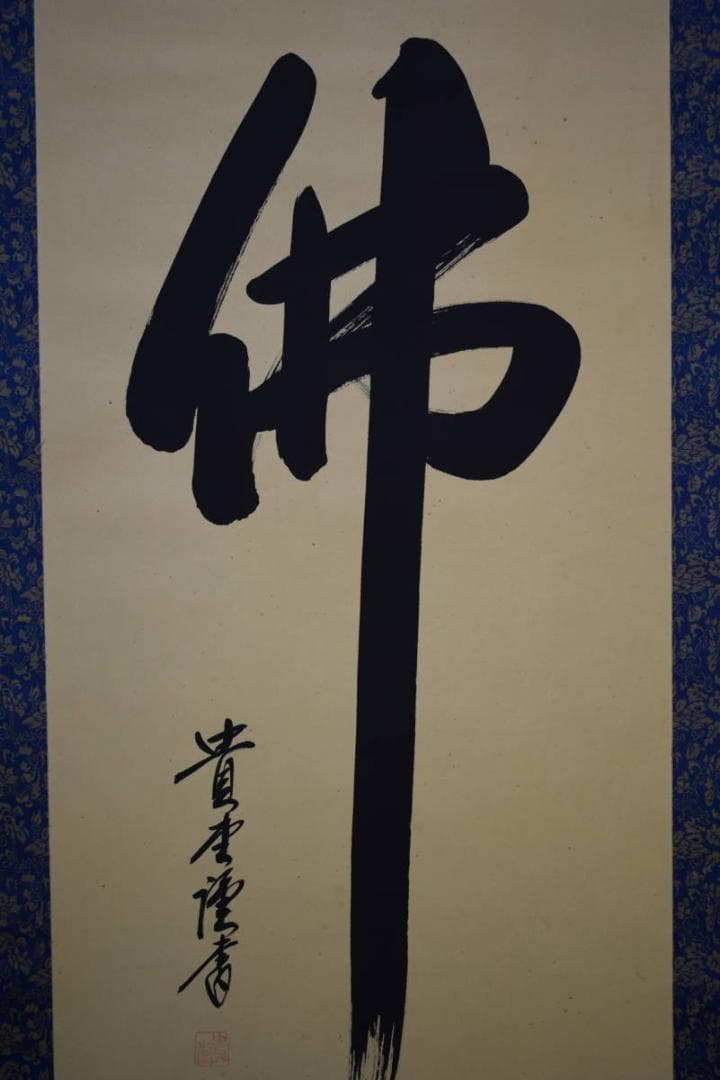 佛
貴堂謹書